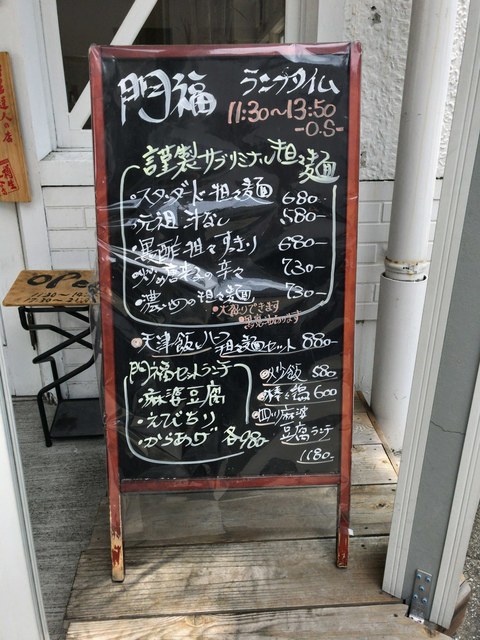 門福
ランチタイム
11:30〜13:50
-O.S-
謹製サブリミナル担々麺
・スタンダード担々麺 680-
・元祖汁なし 580-
・黒酢担々すきり 680-
・炒め唐辛子の辛々 730-
・濃いめの担々麺 730-
・大盛りできます
・天津飯とハーフ担々麺セット 880-
門福セットランチ
・麻婆豆腐
・えびちり
・からあげ 各980-
・炒飯 580
・棒々鶏 600
・四川麻婆
豆腐ランチ
1180-
OPEN